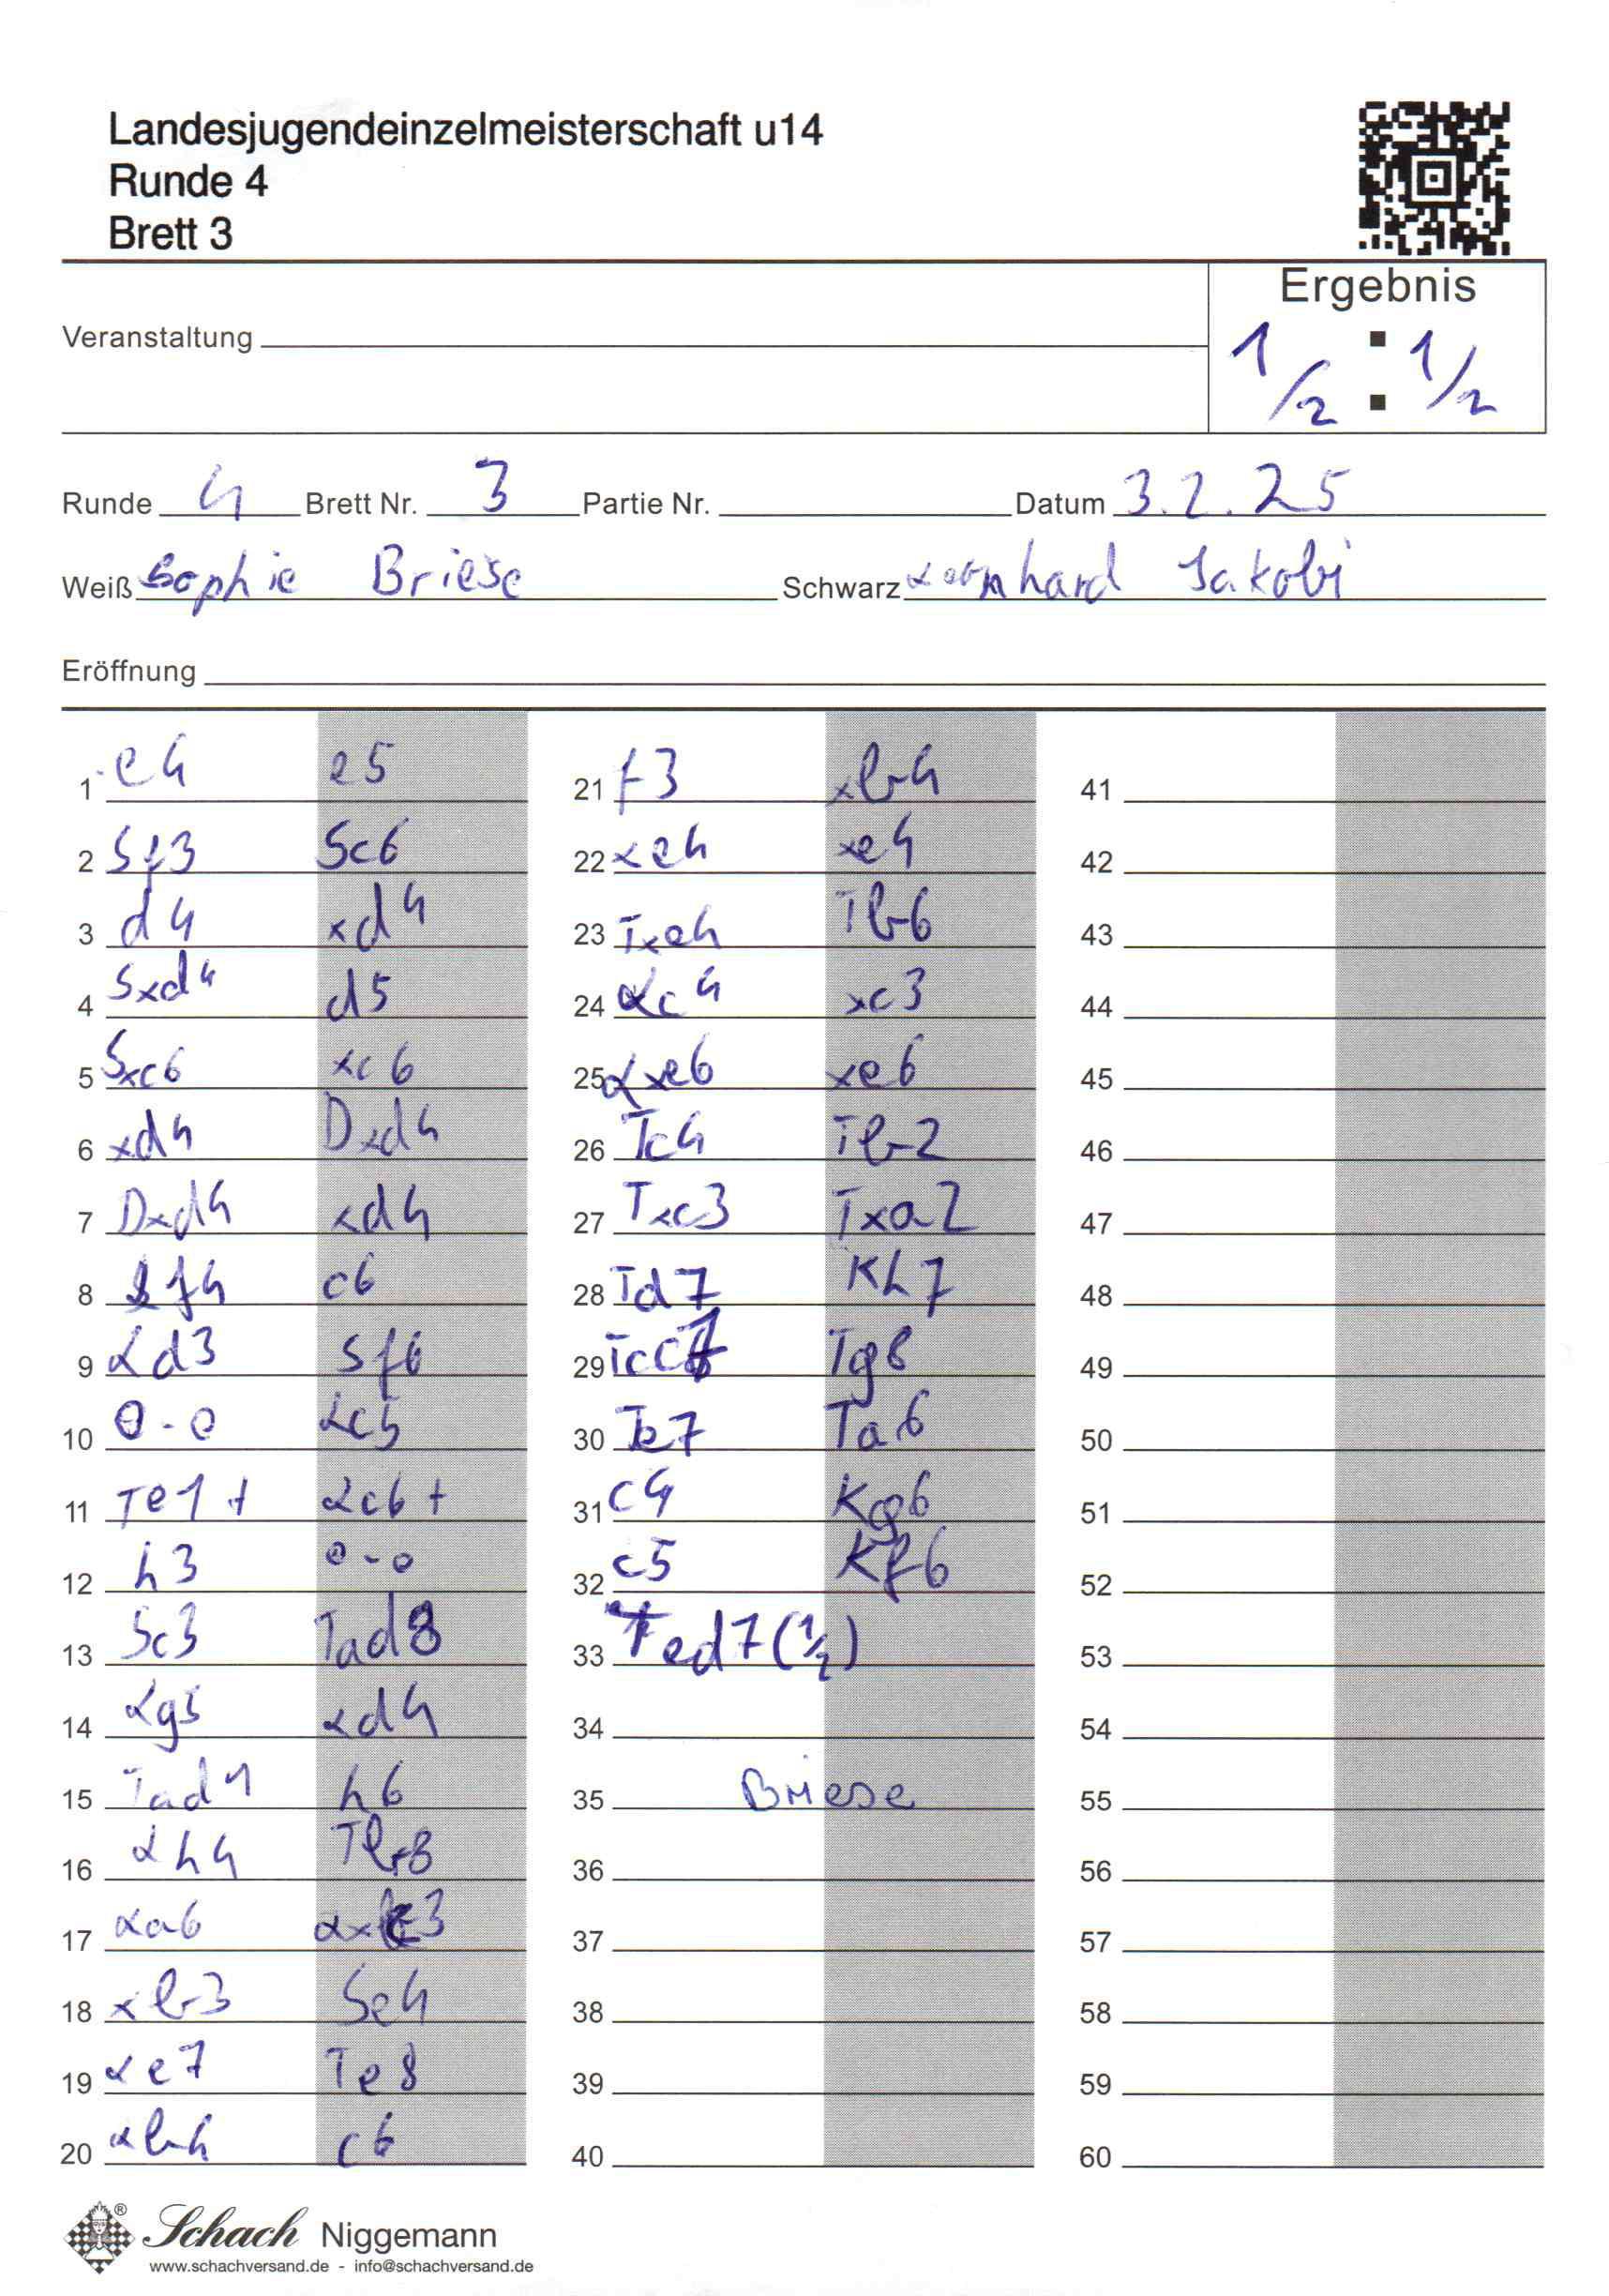 Landesjugendeinzelmeisterschaft u14
Runde 4
Brett 3
Ergebnis
Veranstaltung
1/2 : 1/2
Runde 4 Brett Nr. 3 Partie Nr. Datum 3.2.25
Weiß Sophie Briese Schwarz Jakobi
Eröffnung
1 e4 e5
2 Sf3 Sc6
3 d4 xd4
4 Sxd4 d5
5 Sxc6 xc6
6 xd4 Dxd4
7 Dxd4 xd4
8 Lf4 c6
9 Ld3 Sf6
10 0-0 Lc5
11 Te1+ Lc6+
12 h3 0-0
13 Sc3 Tad8
14 Lg5 Ld4
15 Tad1 h6
16 Lh4 Tb8
17 La6 Lxc3
18 xb3 Se4
19 Le7 Te8
20 Lb4 c6
21 f3 xb4
22 xe4 xe4
23 Txe4 Tb6
24 Lc4 xc3
25 Lxe6 xe6
26 Tc4 Tb2
27 Txc3 Txa2
28 Td7 Kh7
29 Tcc7 Tg8
30 Te7 Ta6
31 c4 Kg6
32 c5 Kf6
33 Ted7 (1/2)
34
35 Briese
36
37
38
39
40
41
42
43
44
45
46
47
48
49
50
51
52
53
54
55
56
57
58
59
60
Schach Niggemann
www.schachversand.de - info@schachversand.de